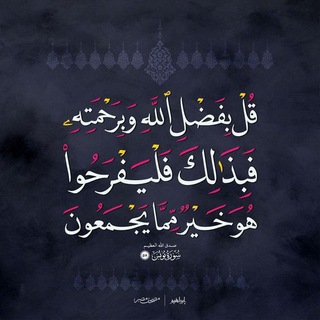 قُلْ بِفَضْلِ ٱللَّهِ وَبِرَحْمَتِهِۦ
فَبِذَٰلِكَ فَلْيَفْرَحُوا۟
هُوَ خَيْرٌ مِّمَّا يَجْمَعُونَ
صدق الله العظيم
سُورَةُ يُونُس ٥٨